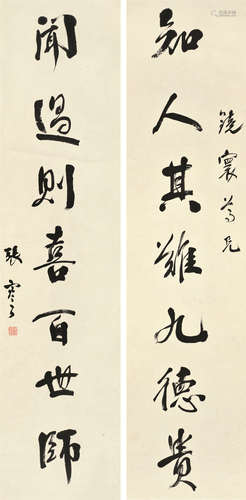 知人其難九德貴
鏡寰
尊兄
聞過則喜百世師
張